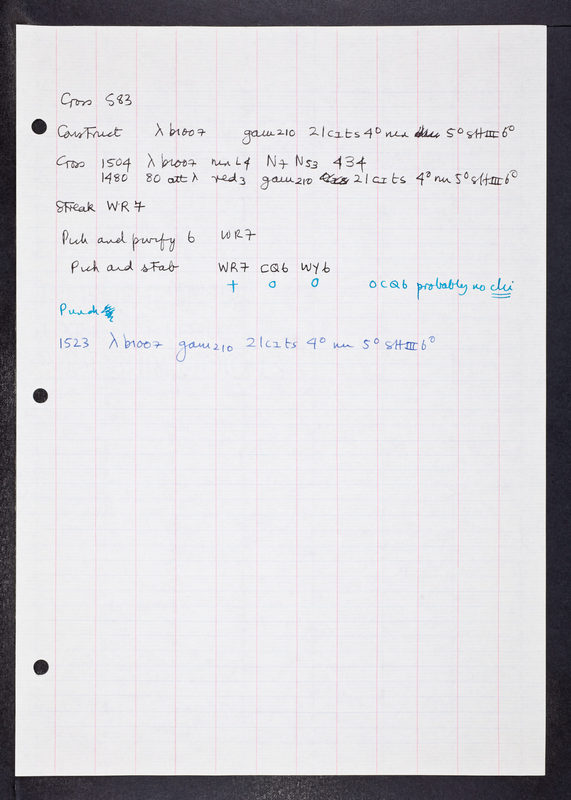 Cross S83
Construct λ b1007 gam210 21cIts 4° nin 5° sHIII6°
Cross 1504 λ b1007 nin L4 N7 N53 434
1480 80 att λ red3 gam210 21cIts 4° nin 5° sHIII6°
Streak WR7
Pick and purify 6 WR7
Pick and stab WR7 CQ6 WY6
+ 0 0 0 CQ6 probably no chi
1523 λ b1007 gam210 21cIts 4° nin 5° sHIII6°